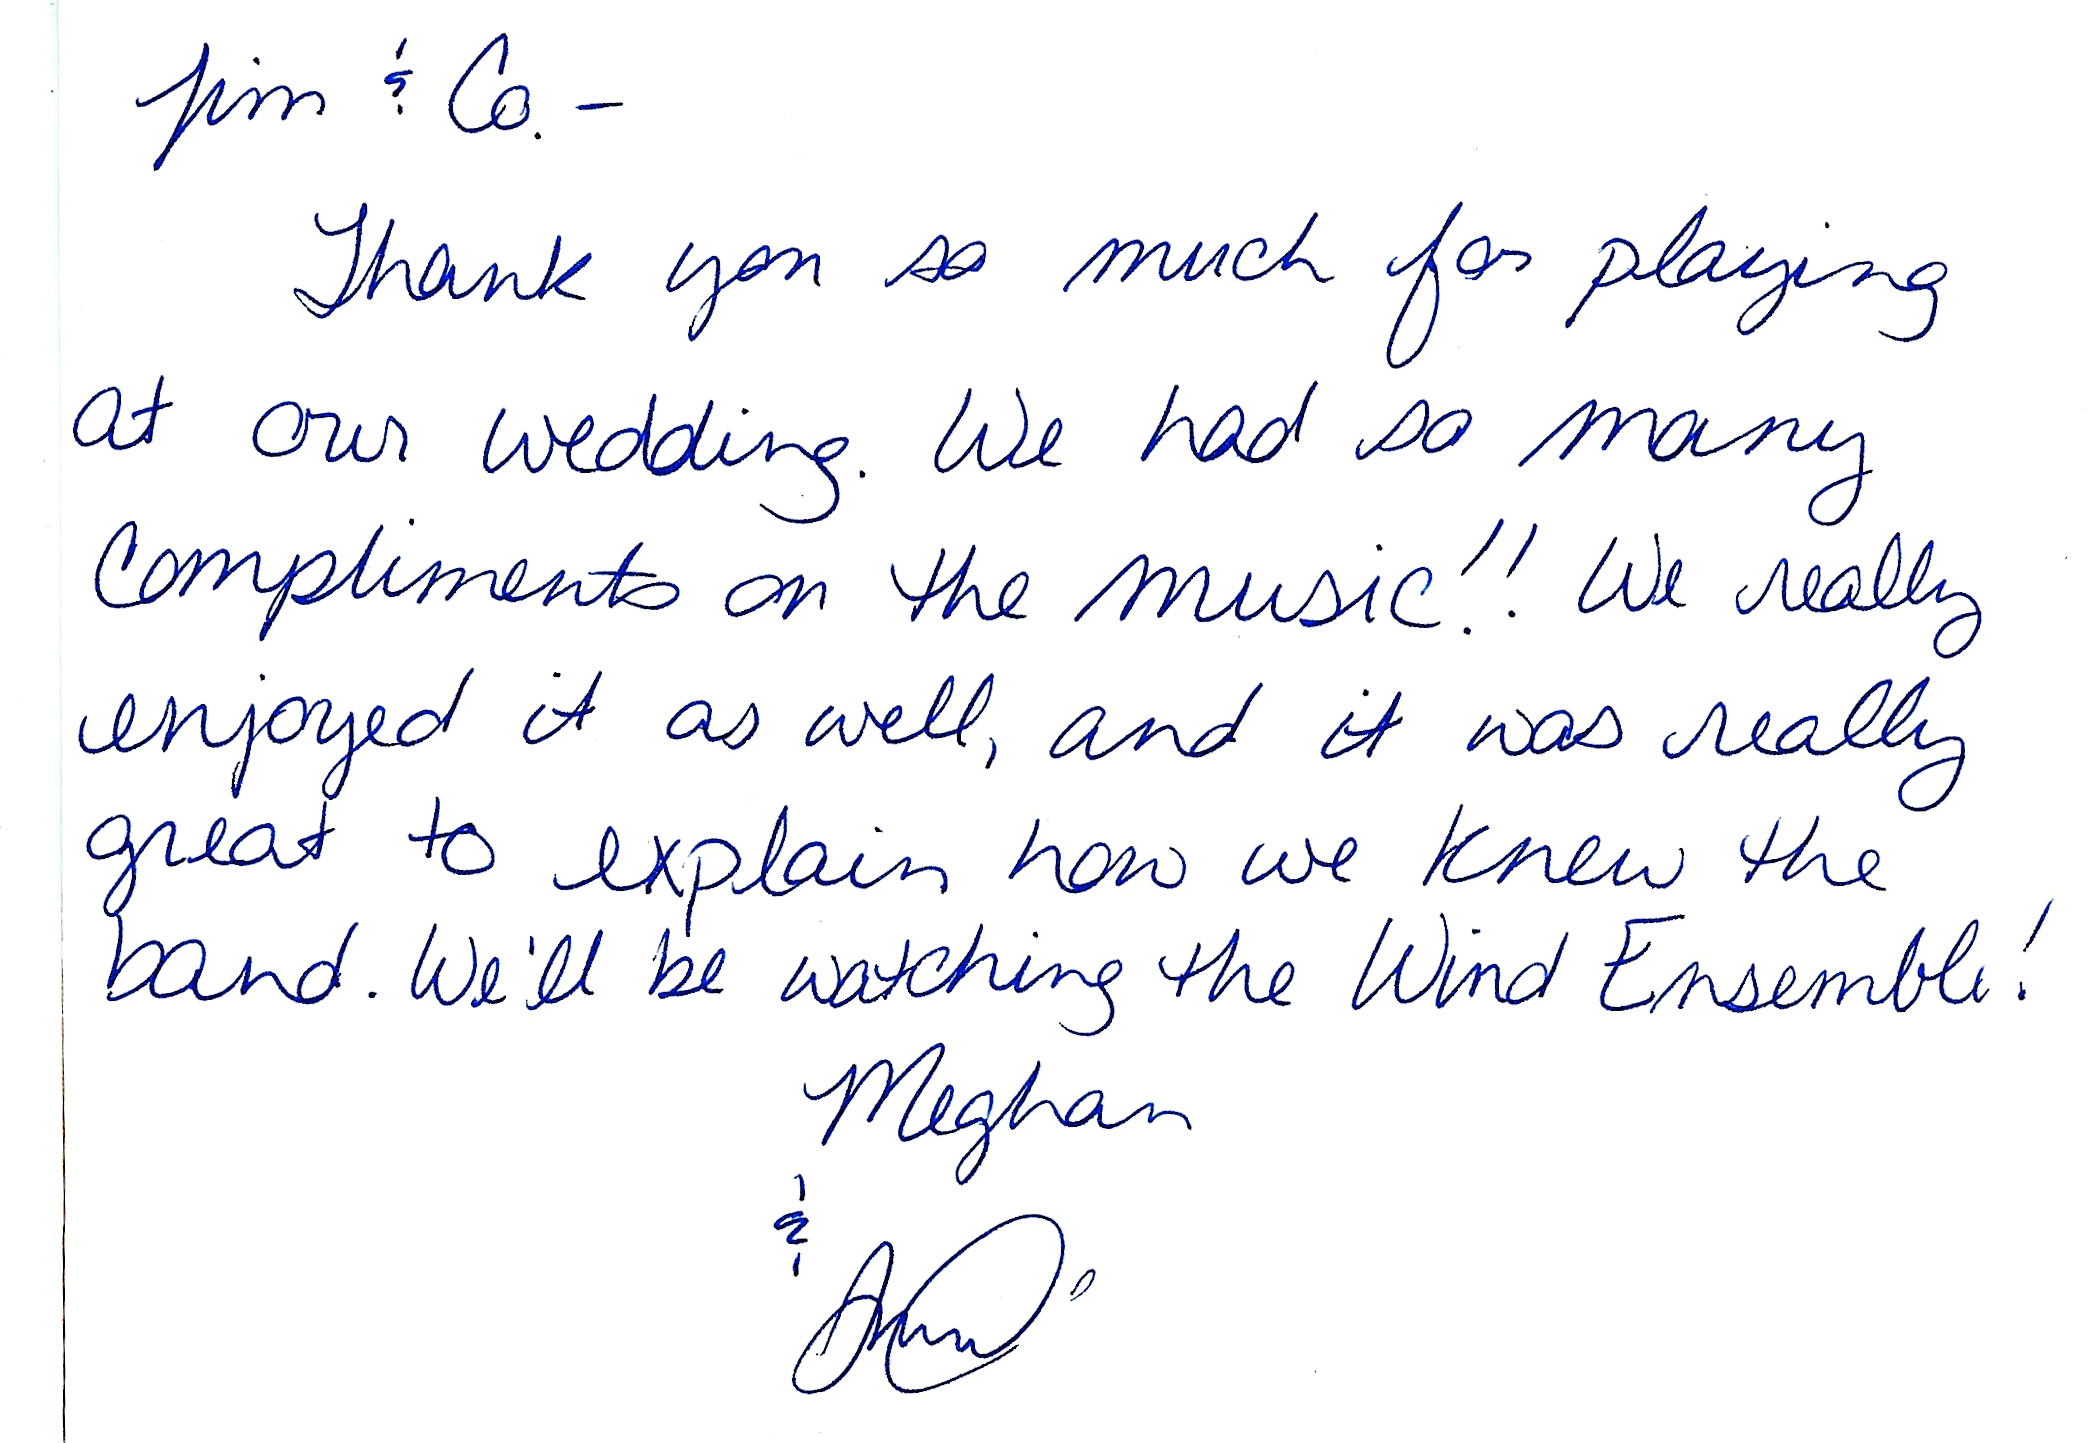 Jim & Co. -
Thank you so much for playing
at our wedding. We had so many
compliments on the music!! We really
enjoyed it as well, and it was really
great to explain how we knew the
band. We'll be watching the Wind Ensemble!
Meghan
&